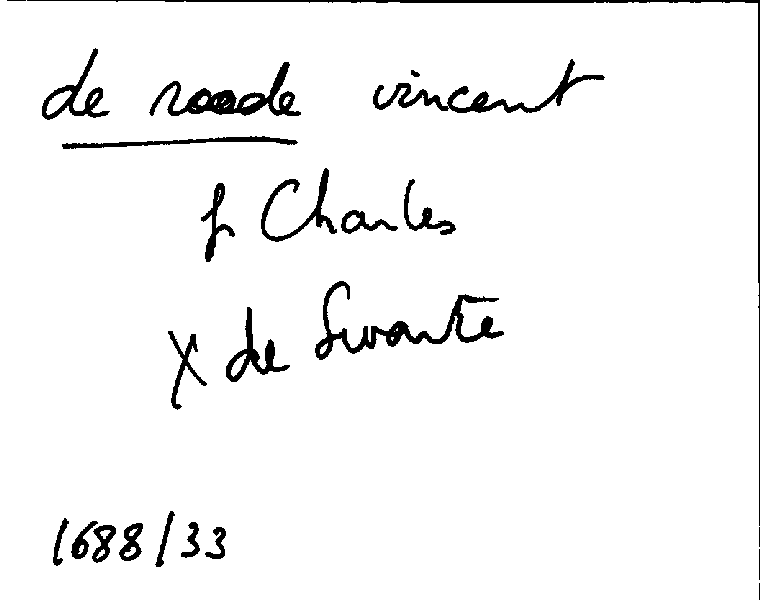 de roode vincent
f Charles
X de Swarte
1688/33